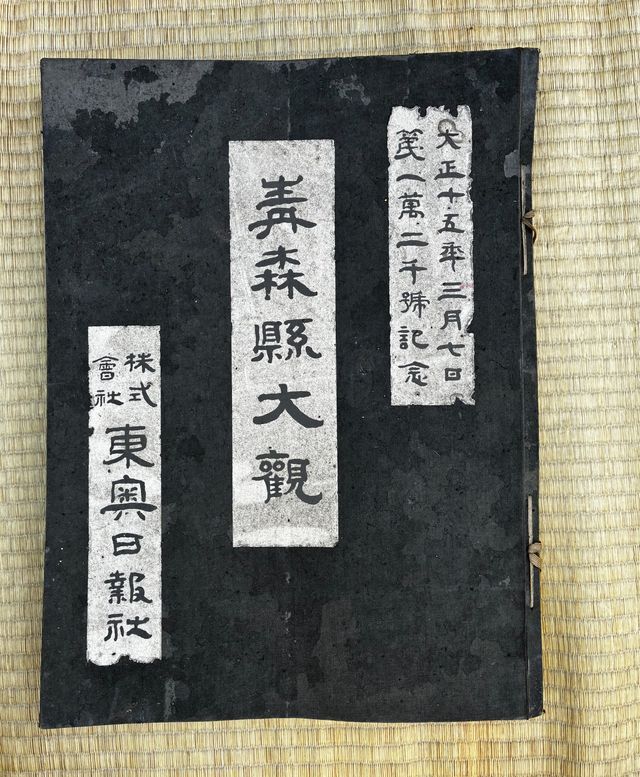 大正十五年三月七日
第一萬二千號記念
青森縣大觀
株式
會社
東奥日報社